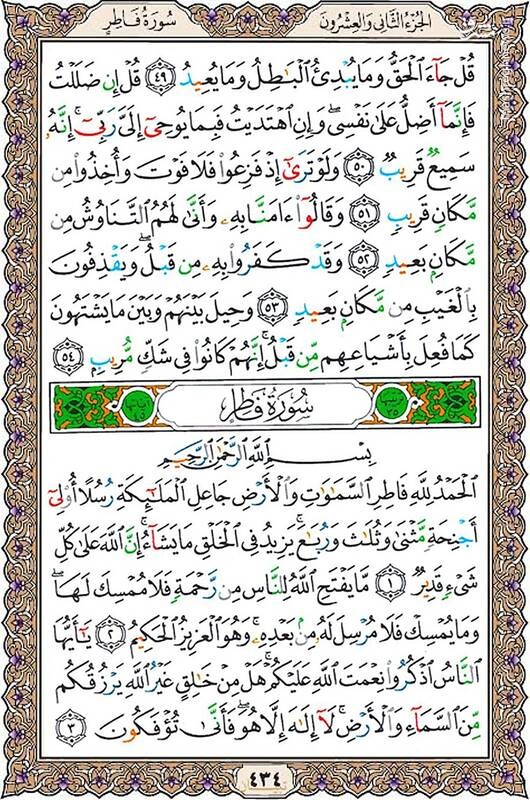 الجزء الثاني والعشرون
سورة فاطر
قُلْ جَآءَ ٱلْحَقُّ وَمَا يُبْدِئُ ٱلْبَـٰطِلُ وَمَا يُعِيدُ ﴿٤٩﴾ قُلْ إِن ضَلَلْتُ
فَإِنَّمَآ أَضِلُّ عَلَىٰ نَفْسِىۖ وَإِنِ ٱهْتَدَيْتُ فَبِمَا يُوحِىٓ إِلَىَّ رَبِّىٓۚ إِنَّهُۥ
سَمِيعٌ قَرِيبٌ ﴿٥٠﴾ وَلَوْ تَرَىٰٓ إِذْ فَزِعُوا۟ فَلَا فَوْتَ وَأُخِذُوا۟ مِن
مَّكَانٍ قَرِيبٍ ﴿٥١﴾ وَقَالُوٓا۟ ءَامَنَّا بِهِۦ وَأَنَّىٰ لَهُمُ ٱلتَّنَاوُشُ مِن
مَّكَانٍۭ بَعِيدٍ ﴿٥٢﴾ وَقَدْ كَفَرُوا۟ بِهِۦ مِن قَبْلُۖ وَيَقْذِفُونَ
بِٱلْغَيْبِ مِن مَّكَانٍۭ بَعِيدٍ ﴿٥٣﴾ وَحِيلَ بَيْنَهُمْ وَبَيْنَ مَا يَشْتَهُونَ
كَمَا فُعِلَ بِأَشْيَاعِهِم مِّن قَبْلُۚ إِنَّهُمْ كَانُوا۟ فِى شَكٍّ مُّرِيبٍۭ ﴿٥٤﴾
سُورَةُ فَاطِرٍ
بِسْمِ ٱللَّهِ ٱلرَّحْمَـٰنِ ٱلرَّحِيمِ
ٱلْحَمْدُ لِلَّهِ فَاطِرِ ٱلسَّمَـٰوَٰتِ وَٱلْأَرْضِ جَاعِلِ ٱلْمَلَـٰٓئِكَةِ رُسُلًا أُو۟لِىٓ
أَجْنِحَةٍ مَّثْنَىٰ وَثُلَـٰثَ وَرُبَـٰعَۚ يَزِيدُ فِى ٱلْخَلْقِ مَا يَشَآءُۚ إِنَّ ٱللَّهَ عَلَىٰ كُلِّ
شَىْءٍ قَدِيرٌ ﴿١﴾ مَّا يَفْتَحِ ٱللَّهُ لِلنَّاسِ مِن رَّحْمَةٍ فَلَا مُمْسِكَ لَهَاۖ
وَمَا يُمْسِكْ فَلَا مُرْسِلَ لَهُۥ مِنۢ بَعْدِهِۦۚ وَهُوَ ٱلْعَزِيزُ ٱلْحَكِيمُ ﴿٢﴾ يَـٰٓأَيُّهَا
ٱلنَّاسُ ٱذْكُرُوا۟ نِعْمَتَ ٱللَّهِ عَلَيْكُمْۚ هَلْ مِنْ خَـٰلِقٍ غَيْرُ ٱللَّهِ يَرْزُقُكُم
مِّنَ ٱلسَّمَآءِ وَٱلْأَرْضِۚ لَآ إِلَـٰهَ إِلَّا هُوَۖ فَأَنَّىٰ تُؤْفَكُونَ ﴿٣﴾
٤٣٤